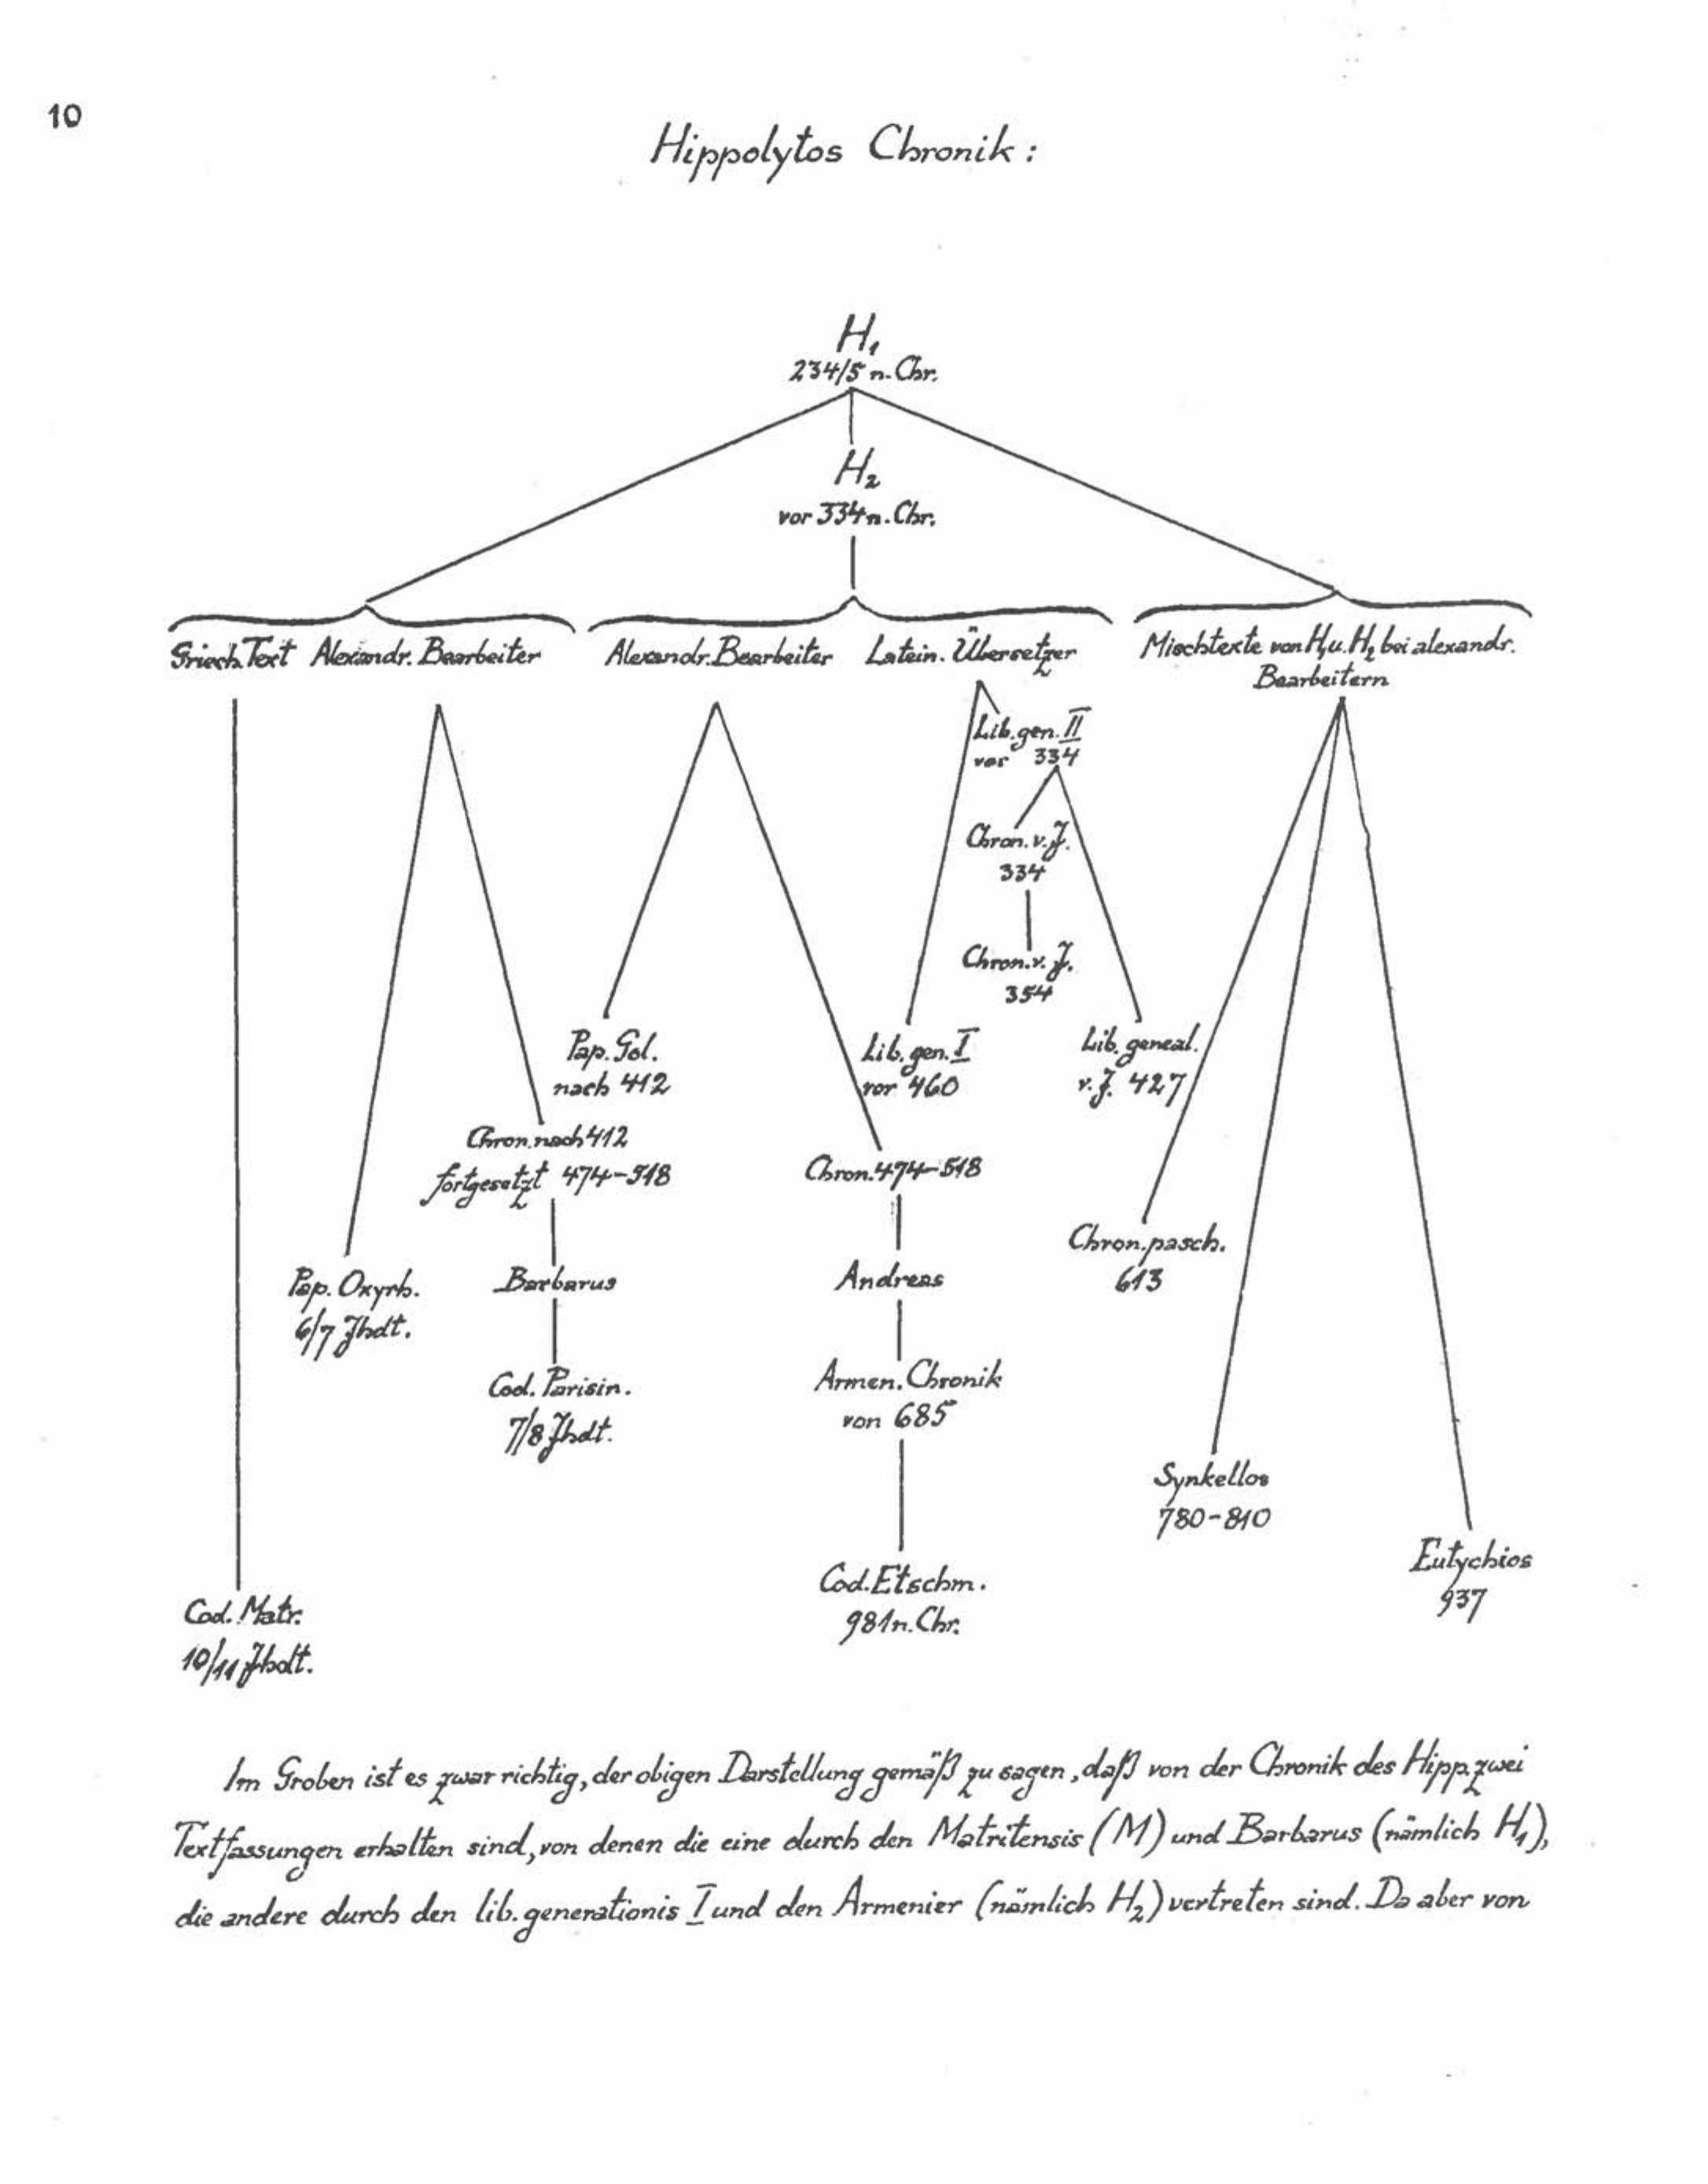 10
Hippolytos Chronik:
H₁
234/5 n. Chr.
H₂
vor 334 n. Chr.
Griech. Text Alexandr. Bearbeiter
Alexandr. Bearbeiter Latein. Übersetzer
Mischtexte von H₁ u. H₂ bei alexandr.
Bearbeitern
Lib. gen. II
vor 334
Chron. v. J.
334
Chron. v. J.
354
Pap. Gol.
nach 412
Lib. gen. I
vor 460
Lib. geneal.
v. J. 427
Chron. nach 412
fortgesetzt 474-518
Chron. 474-518
Chron. pasch.
613
Pap. Oxyrh.
6/7 Jhdt.
Barbarus
Andreas
Cod. Parisin.
7/8 Jhdt.
Armen. Chronik
von 685
Synkellos
780-810
Eutychios
937
Cod. Etschm.
981 n. Chr.
Cod. Matr.
10/11 Jhdt.
Im Groben ist es zwar richtig, der obigen Darstellung gemäß zu sagen, daß von der Chronik des Hipp. zwei
Textfassungen erhalten sind, von denen die eine durch den Matritensis (M) und Barbarus (nämlich H₁),
die andere durch den lib. generationis I und den Armenier (nämlich H₂) vertreten sind. Da aber von